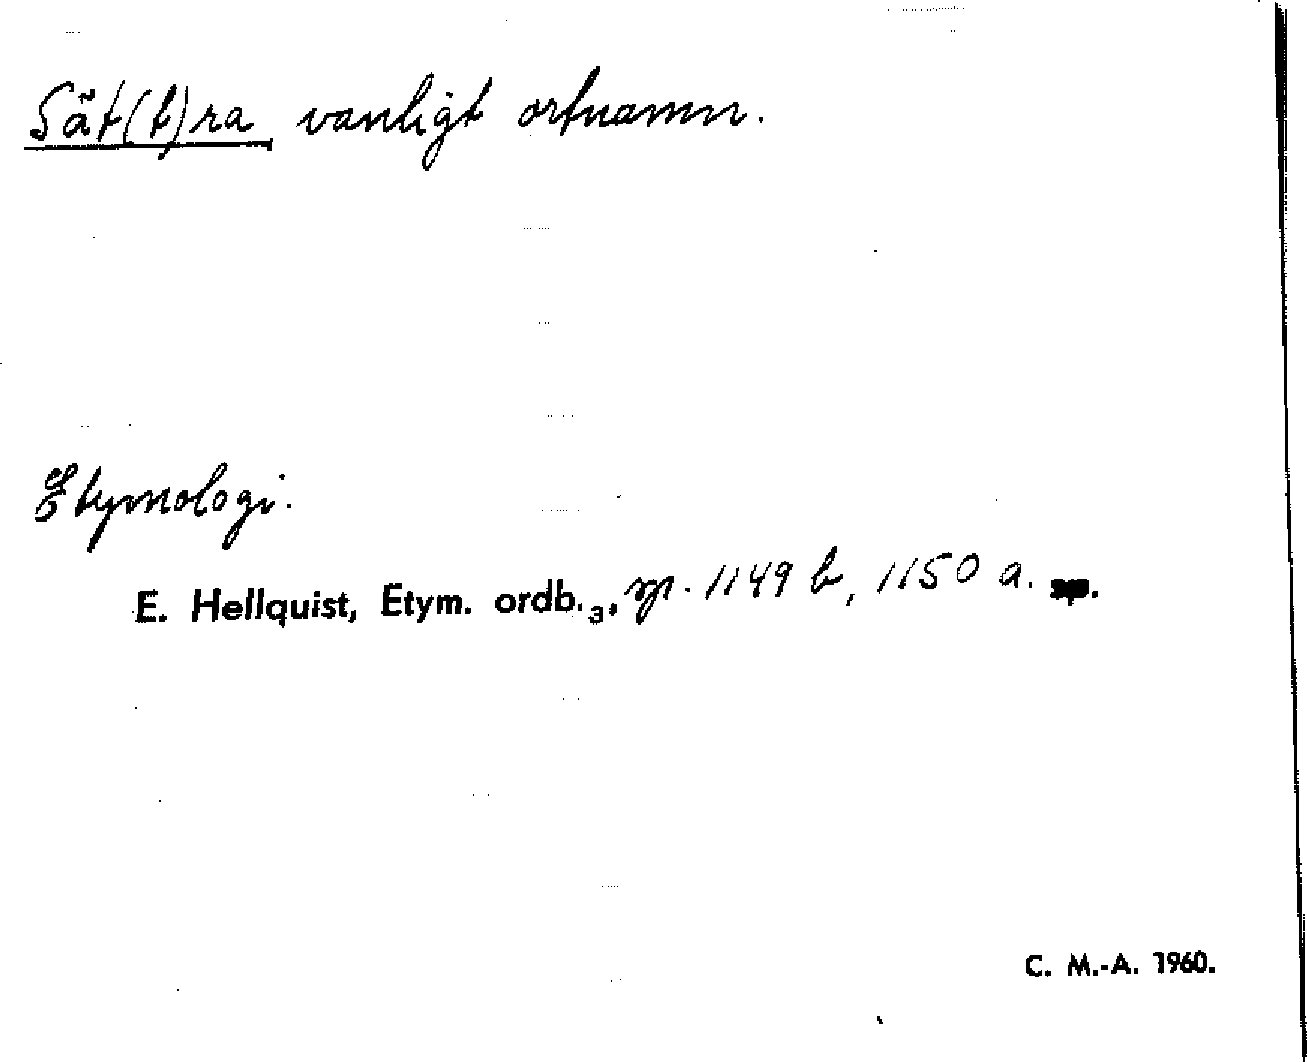 Sät(t)ra vanligt ortnamn.
Etymologi.
E. Hellquist, Etym. ordb.₃, sp. 1149 b, 1150 a.
C. M.-A. 1960.